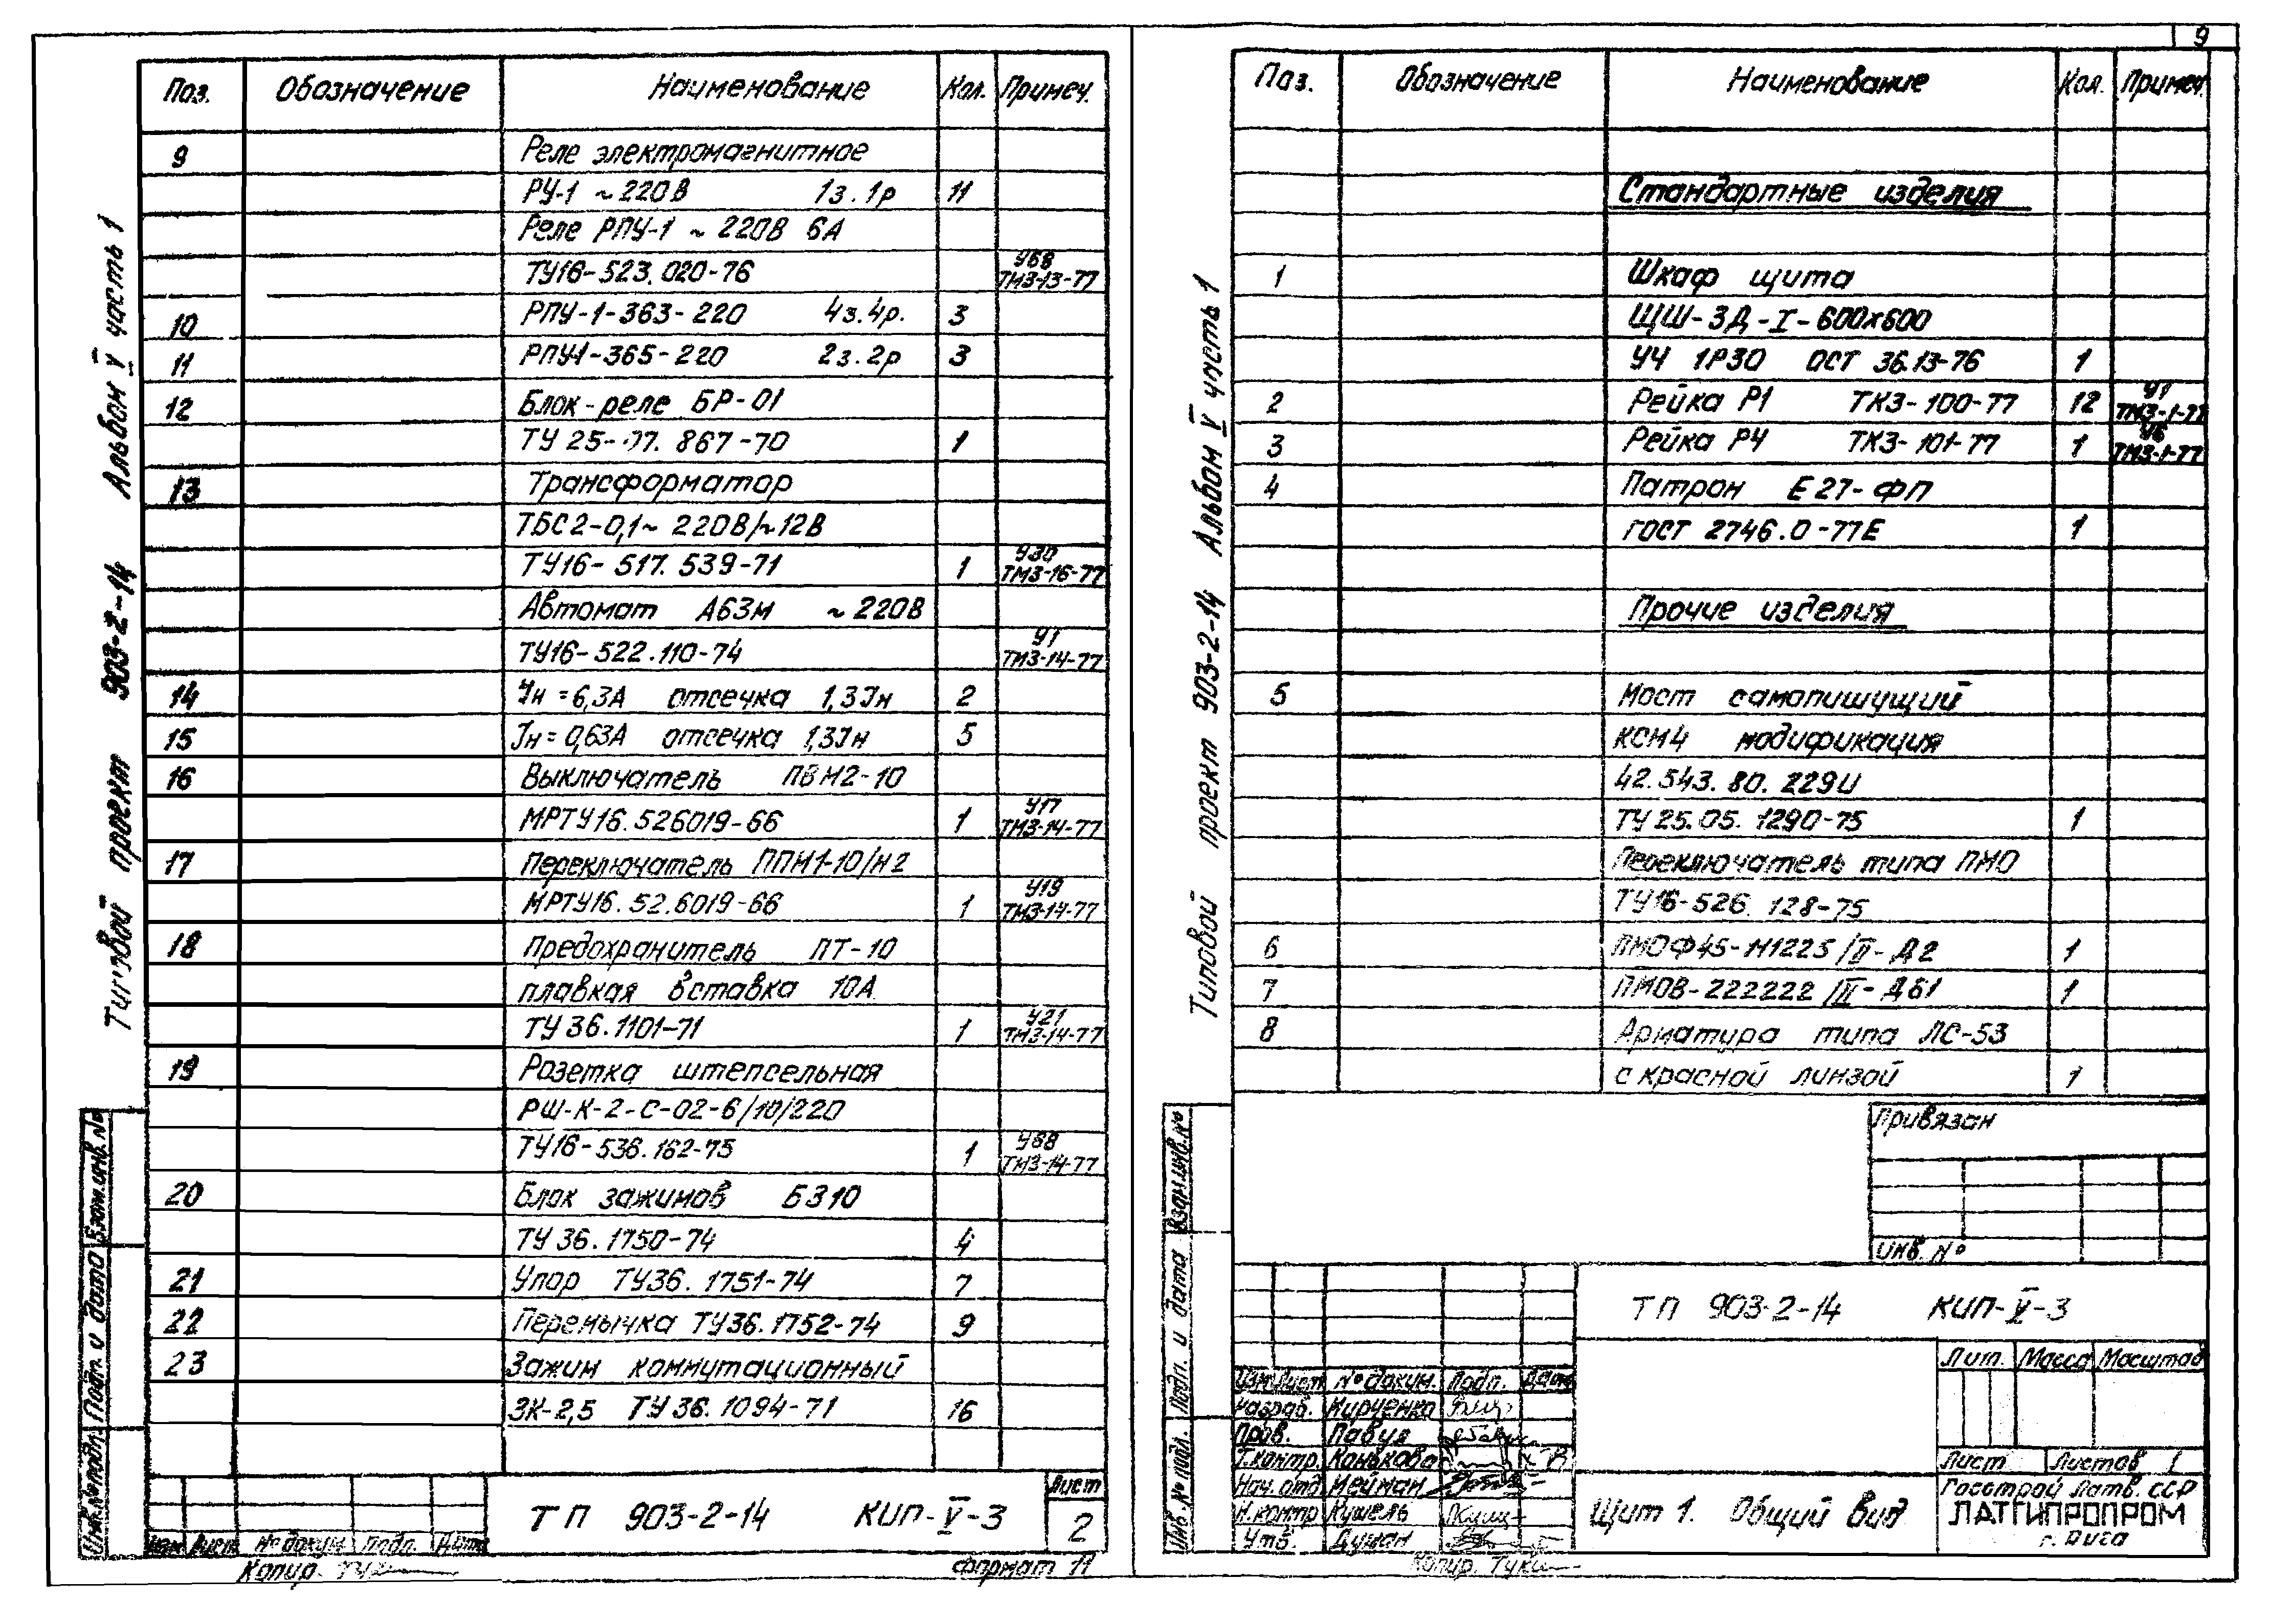 9
Типовой проект 903-2-14 Альбом V часть 1
Поз. Обозначение Наименование Кол. Примеч.
9 Реле электромагнитное
РУ-1 ~220В 1з.1р 11
Реле РПУ-1 ~ 220В 6А
ТУ16-523.020-76 У68 ТМ3-13-77
10 РПУ-1-363-220 4з.4р. 3
11 РПУ-1-365-220 2з.2р 3
12 Блок-реле БР-01
ТУ 25-07.867-70 1
13 Трансформатор
ТБС2-0,1~ 220В/~12В
ТУ16-517.539-71 1 У30 ТМ3-16-77
Автомат А63м ~220В
ТУ16-522.110-74 У1 ТМ3-14-77
14 Jн=6,3А отсечка 1,3Jн 2
15 Jн=0,63А отсечка 1,3Jн 5
16 Выключатель ПВМ2-10
МРТУ16.526019-66 1 У17 ТМ3-14-77
17 Переключатель ППМ1-10/н2
МРТУ16.52.6019-66 1 У19 ТМ3-14-77
18 Предохранитель ПТ-10
плавкая вставка 10А
ТУ 36.1101-71 1 У21 ТМ3-14-77
19 Розетка штепсельная
РШ-К-2-С-02-6/10/220
ТУ16-536.162-75 1 У88 ТМ3-14-77
20 Блок зажимов БЗ10
ТУ 36.1750-74 4
21 Упор ТУ36.1751-74 7
22 Перемычка ТУ36.1752-74 9
23 Зажим коммутационный
ЗК-2,5 ТУ 36.1094-71 16
Инв.№подл. Подп. и дата Взам.инв.№
Изм Лист №докум. Подп. Дата
ТП 903-2-14 КИП-V-3
Лист
2
Копир.
Формат 11
Типовой проект 903-2-14 Альбом V часть 1
Поз. Обозначение Наименование Кол. Примеч.
Стандартные изделия
1 Шкаф щита
ЩШ-ЗД-I-600х600
УЧ 1Р30 ОСТ 36.13-76 1
2 Рейка Р1 ТК3-100-77 12 У1 ТМ3-1-77
3 Рейка Р4 ТК3-101-77 1 У6 ТМ3-1-77
4 Патрон Е27-ФП
ГОСТ 2746.0-77Е 1
Прочие изделия
5 Мост самопишущий
КСМ4 модификация
42.543.80.229И
ТУ 25.05.1290-75 1
Переключатель типа ПМО
ТУ16-526.128-75
6 ПМОФ45-Н1225/II-Д2 1
7 ПМОВ-222222/III-Д61 1
8 Арматура типа ЛС-53
с красной линзой 1
Инв.№ подл. Подп. и дата Взам.инв.№
Привязан
Инв. №
ТП 903-2-14 КИП-V-3
Изм Лист №докум. Подп. Дата
Разраб. Кирченко
Пров. Павул
Т.контр. Конькова
Нач.отд. Нейман
Н.контр Кушель
Утв. Думан
Щит 1. Общий вид
Лит. Масса Масштаб
Лист Листов 1
Госстрой Латв.ССР
ЛАТГИПРОПРОМ
г. Рига
Копир.